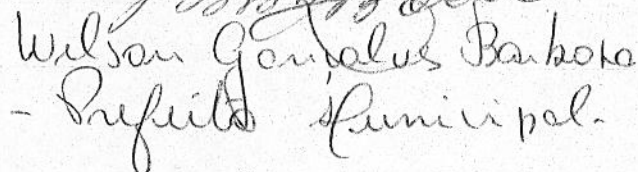 Wilson Gonçalves Barbosa
- Prefeito Municipal -